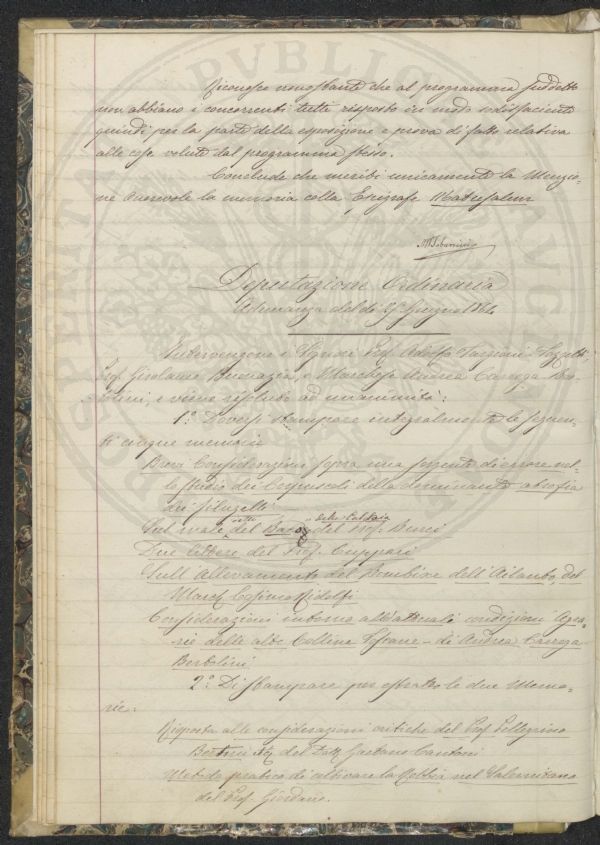 Riconosce nonostante che al programma suddetto
non abbiano i concorrenti tutti risposto in modo sodisfacente
quindi per la parte della esposizione e prova di fatto relativa
alle cose volute dal programma stesso.
Conclude che meriti unicamente la Menzio-
ne Onorevole la memoria colla Epigrafe Matusalem
Deputazione Ordinaria
Adunanza del dì 27 Giugno 1864
Intervengono i Signori Prof. Adolfo Targioni-Tozzetti
Prof. Girolamo Buonazia, e Marchese Andrea Carega Ber-
tolini, e viene risoluto ad unanimità:
1.º Doversi stampare integralmente le seguen-
ti cinque memorie
Brevi Considerazioni sopra una sorgente di errore nel-
lo studio dei Corpuscoli della dominante atrofia
dei filugelli
Sul male detto del del Prof. Burci
Due lettere del Prof. Cuppari
Sull'Allevamento del Bombice dell'Ailanto, del
March. Cosimo Ridolfi
Considerazioni intorno all'attuali condizioni Agra-
rie delle alte Colline Pisane - di Andrea Carega
Bertolini
2.º Di stampare per estratto le due Memo-
rie:
Risposta alle considerazioni critiche del Prof. Pellegrino
Bertini del Dott. Gaetano Cantoni
Metodo pratico di coltivare la Robbia nel Salernitano
del Prof. Giordano.